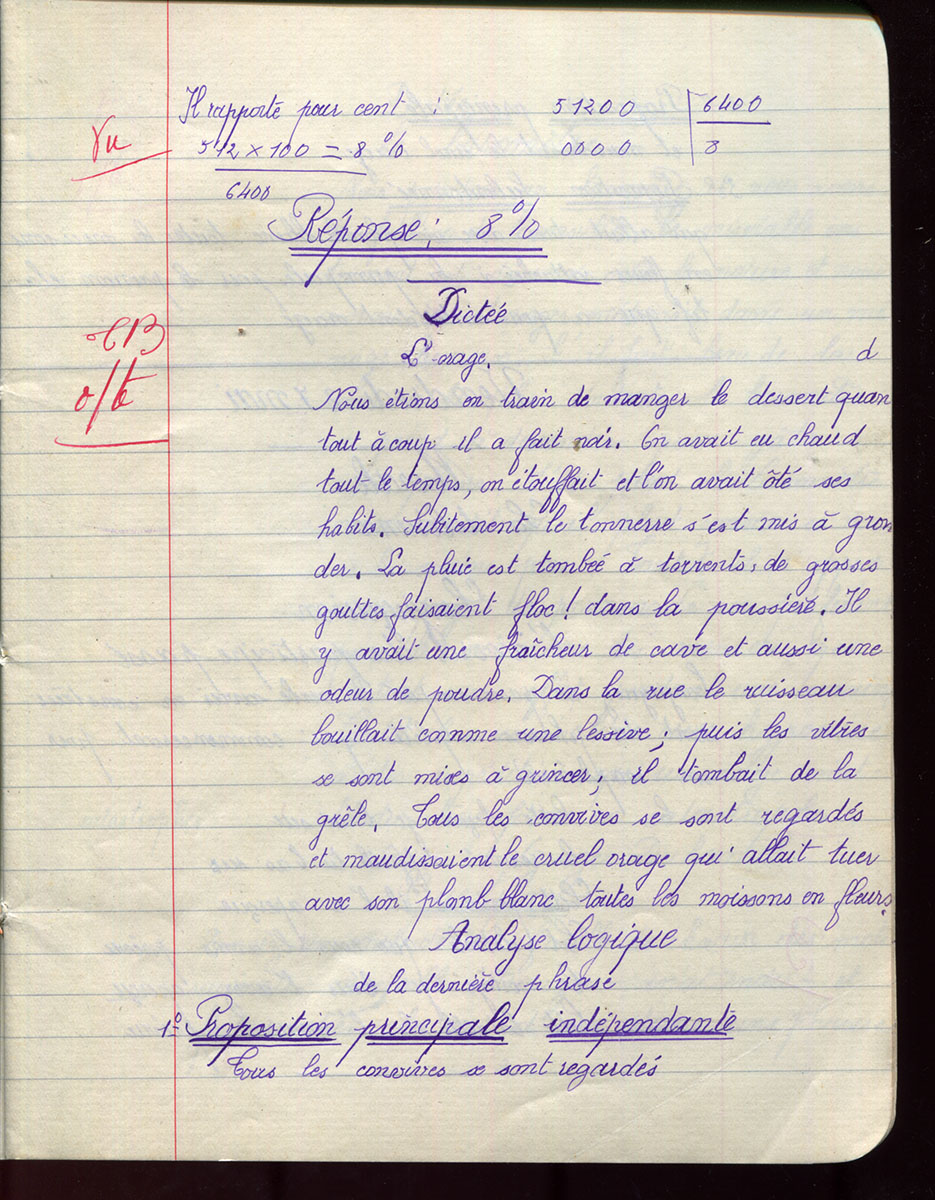 Il rapporte pour cent : 51200 | 6400
Vu
512 × 100 = 8 % 0000 8
6400
Réponse : 8 %
Dictée
TB
L'orage. d
0/t
Nous étions en train de manger le dessert quan
tout à coup il a fait noir. On avait eu chaud
tout le temps, on étouffait et l'on avait ôté ses
habits. Subitement le tonnerre s'est mis à gron
der. La pluie est tombée à torrents, de grosses
gouttes faisaient floc! dans la poussière. Il
y avait une fraîcheur de cave et aussi une
odeur de poudre. Dans la rue le ruisseau
bouillait comme une lessive ; puis les vitres
se sont mises à grincer ; il tombait de la
grêle. Tous les convives se sont regardés
et maudissaient le cruel orage qui allait tuer
avec son plomb blanc toutes les moissons en fleurs.
Analyse logique
de la dernière phrase
1º Proposition principale indépendante
Tous les convives se sont regardés